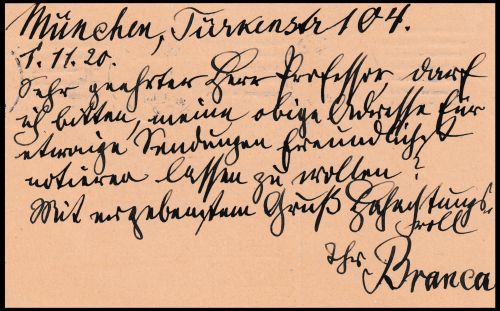 München, Türkenstr 104.
1. 11. 20.
Sehr geehrter Herr Professor, darf
ich bitten, meine obige Adresse für
etwaige Sendungen freundlichst
notieren lassen zu wollen?
Mit ergebenstem Gruß Hochachtungs-
voll
Ihr
Branca